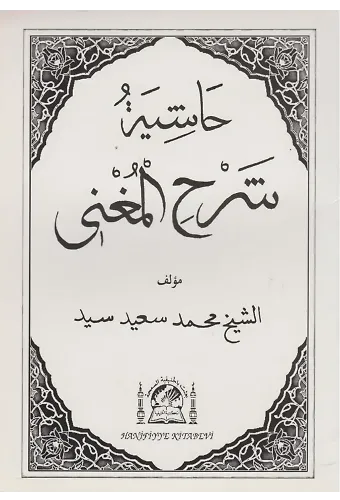 حَاشِيَةُ
شَرْحِ الْمُغْنِي
مؤلف
الشيخ محمد سعيد سيد
HANİFİYYE KİTABEVİ